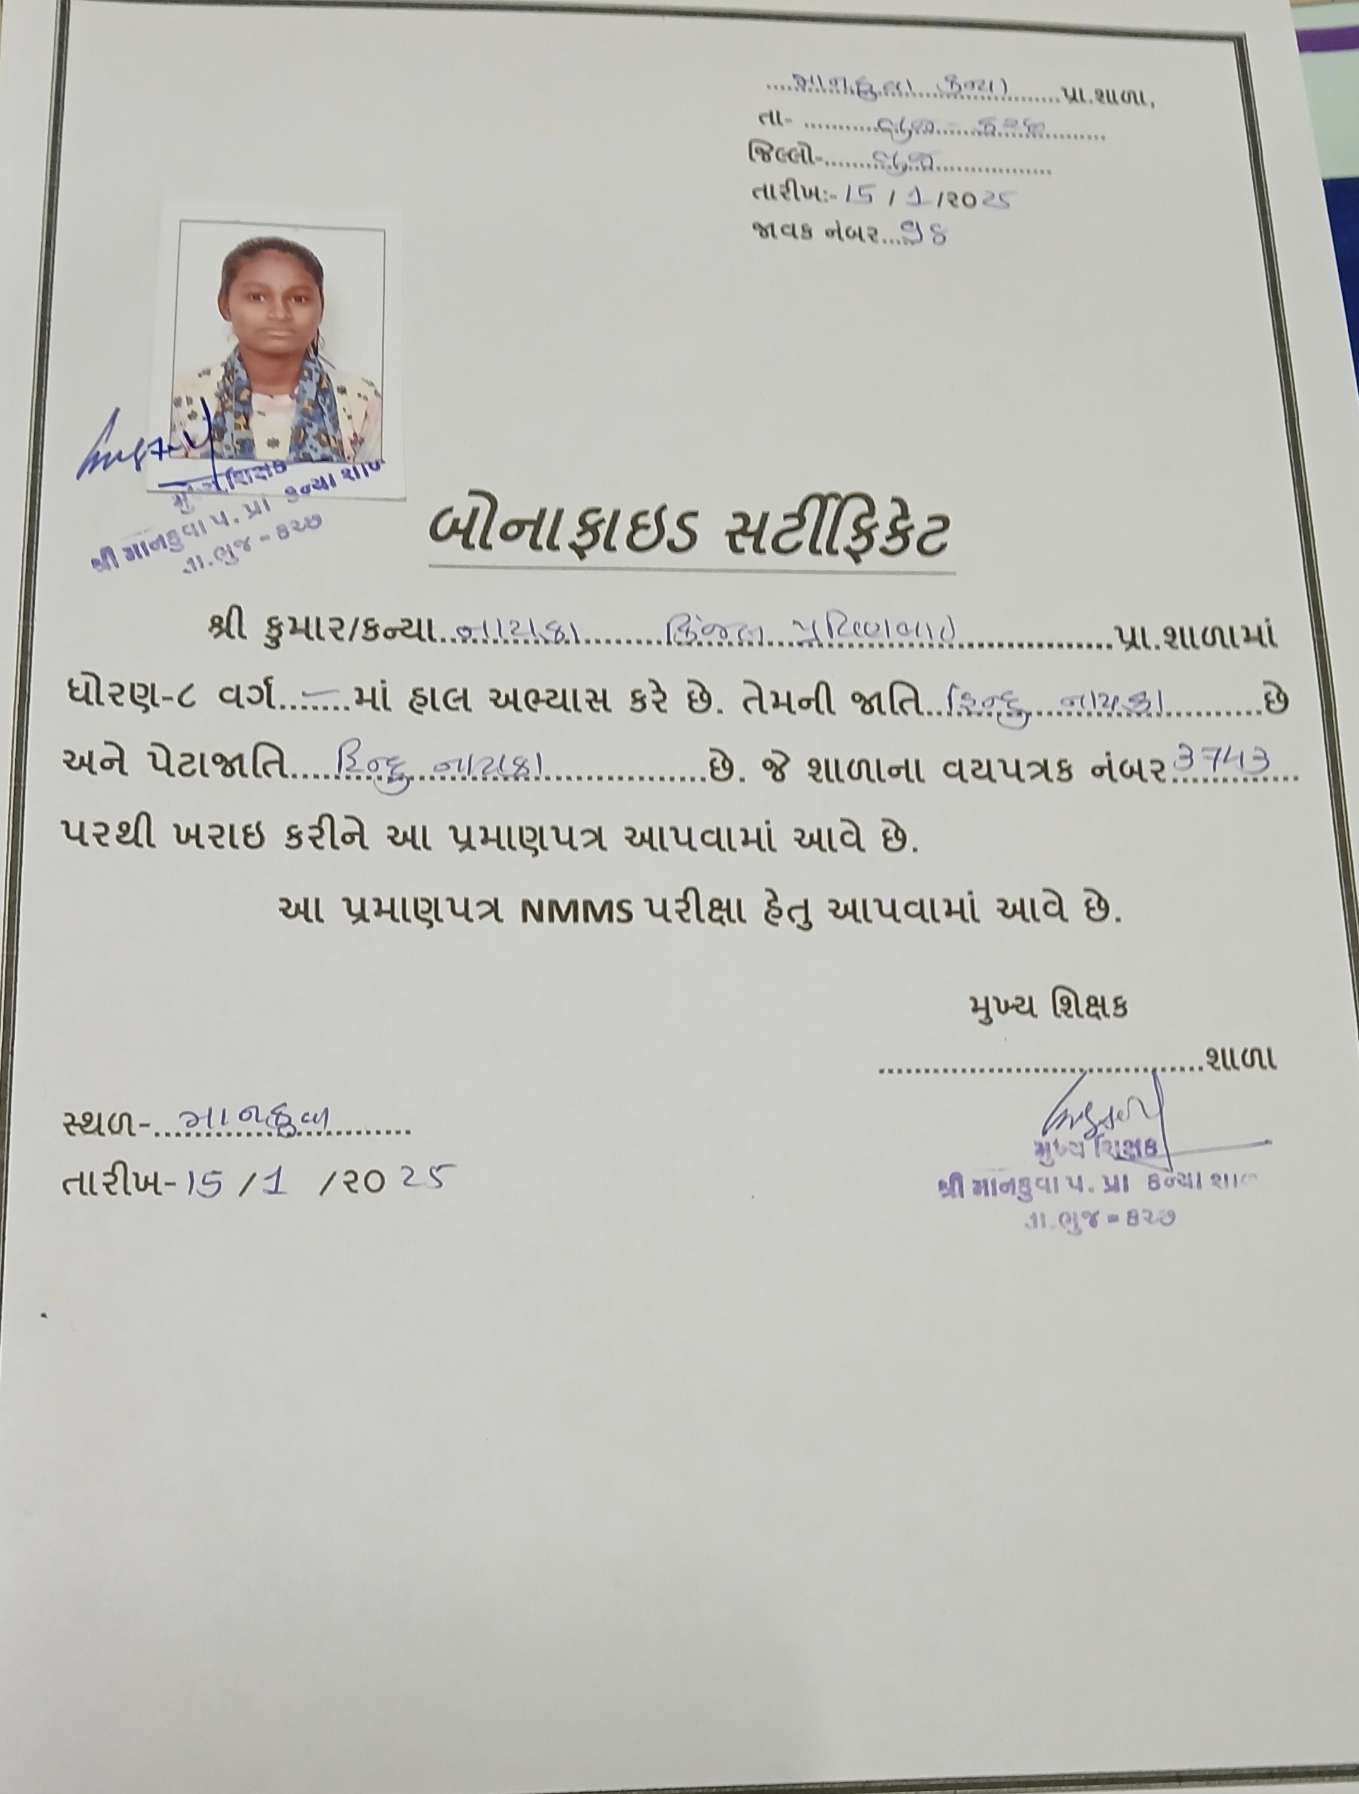 માનકુવા કન્યા પ્રા.શાળા,
તા- ભુજ - કચ્છ
જિલ્લો- ભુજ
તારીખ:- 15 / 1 /૨૦25
જાવક નંબર...૭૪
મુખ્ય શિક્ષક
શ્રી માનકુવા પ. પ્રા કન્યા શાળા
તા.ભુજ = કચ્છ
બોનાફાઇડ સર્ટીફિકેટ
શ્રી કુમાર/કન્યા નાયકા કિંજલ પ્રવિણભાઇ પ્રા.શાળામાં
ધોરણ-૮ વર્ગ.......માં હાલ અભ્યાસ કરે છે. તેમની જાતિ હિન્દુ નાયકા છે
અને પેટાજાતિ હિન્દુ નાયકા છે. જે શાળાના વયપત્રક નંબર 3743
પરથી ખરાઇ કરીને આ પ્રમાણપત્ર આપવામાં આવે છે.
આ પ્રમાણપત્ર NMMS પરીક્ષા હેતુ આપવામાં આવે છે.
મુખ્ય શિક્ષક
................................શાળા
સ્થળ- માનકુવા
તારીખ- 15 / 1 /૨૦ 25
મુખ્ય શિક્ષક
શ્રી માનકુવા પ. પ્રા કન્યા શાળા
તા.ભુજ = કચ્છ